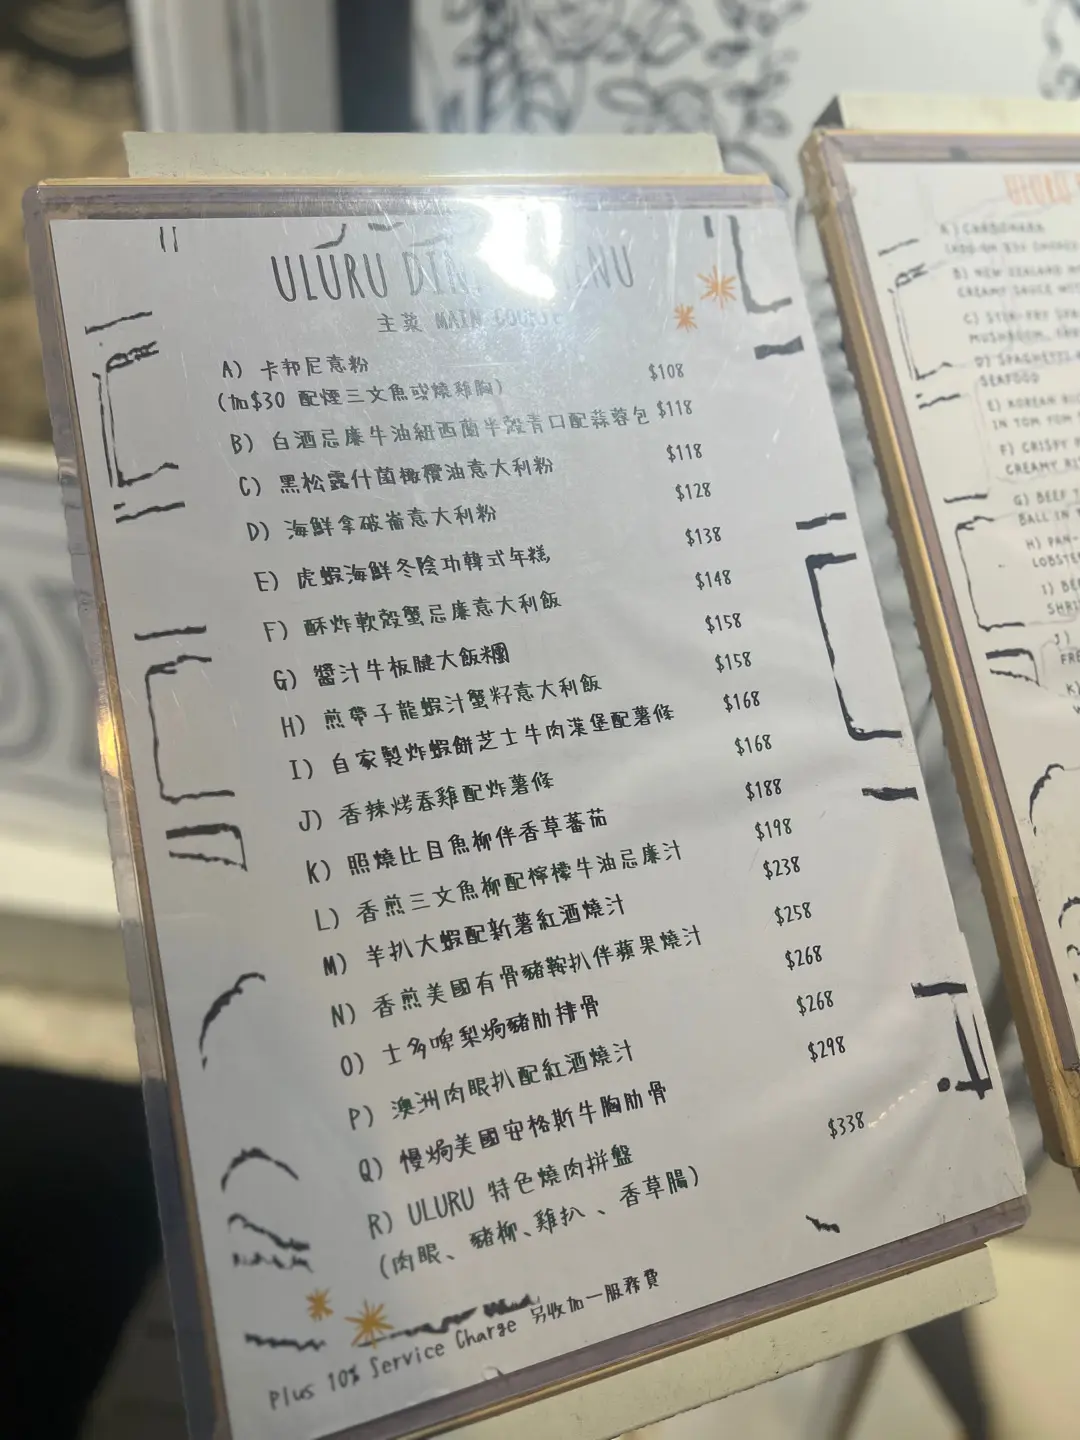 ULURU DINNER MENU
主菜 MAIN COURSE
A) 卡邦尼意粉 $108
(加$30 配煙三文魚或燒雞胸)
B) 白酒忌廉牛油紐西蘭半殼青口配蒜蓉包 $118
C) 黑松露什菌橄欖油意大利粉 $118
D) 海鮮拿破崙意大利粉 $128
E) 虎蝦海鮮冬陰功韓式年糕 $138
F) 酥炸軟殼蟹忌廉意大利飯 $148
G) 醬汁牛板腱大飯糰 $158
H) 煎帶子龍蝦汁蟹籽意大利飯 $158
I) 自家製炸蝦餅芝士牛肉漢堡配薯條 $168
J) 香辣烤春雞配炸薯條 $168
K) 照燒比目魚柳伴香草蕃茄 $188
L) 香煎三文魚柳配檸檬牛油忌廉汁 $198
M) 羊扒大蝦配新薯紅酒燒汁 $238
N) 香煎美國有骨豬鞍扒伴蘋果燒汁 $258
O) 士多啤梨焗豬肋排骨 $268
P) 澳洲肉眼扒配紅酒燒汁 $268
Q) 慢焗美國安格斯牛胸肋骨 $298
R) ULURU 特色燒肉拼盤 $338
(肉眼、豬柳、雞扒、香草腸)
Plus 10% Service Charge 另收加一服務費
A) CARBONARA
B) NEW ZEALAND
CREAMY SAUCE
C) STIR-FRY
MUSHROOM
D) SPAGHETTI
SEAFOOD
E) KOREAN
IN TOM YUM
F) CRISPY
CREAMY
G) BEEF
BALL IN
H) PAN-
LOBSTE
I) BE
SHRI
J)
FRE
K)